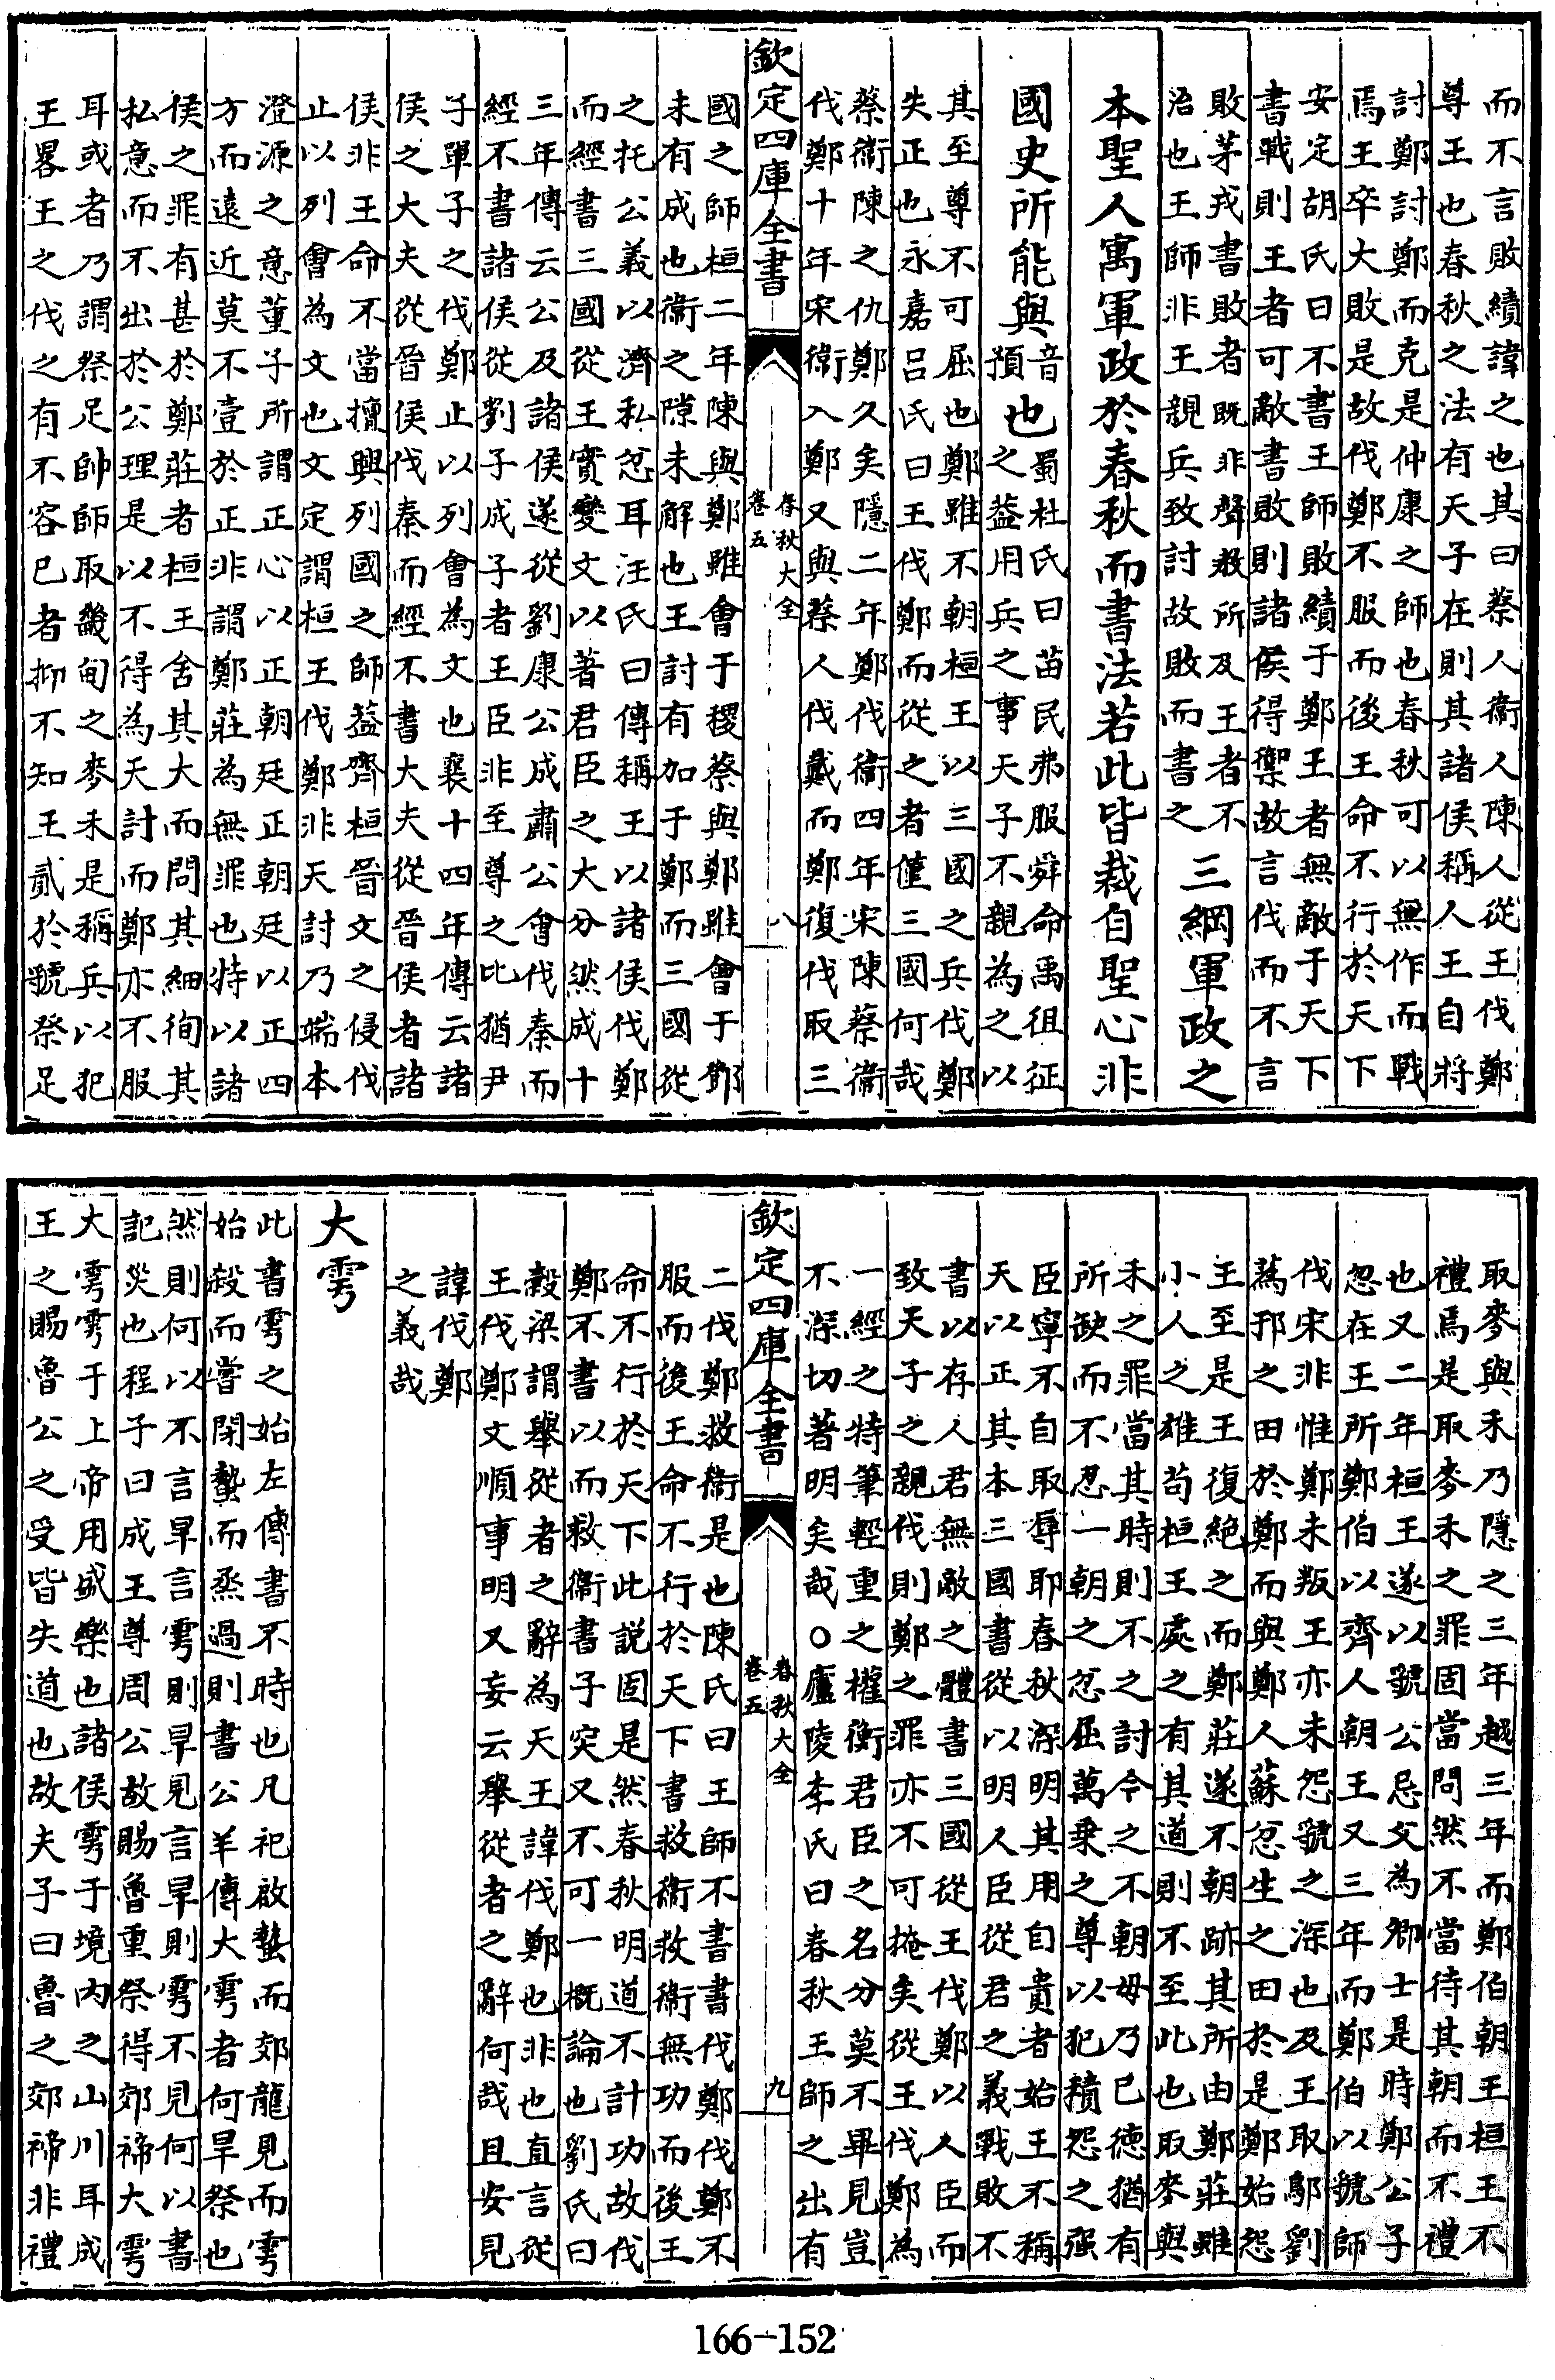 而不言敗績諱之也其曰蔡人衞人陳人從王伐鄭
尊王也春秋之法有天子在則其諸侯稱人王自將
討鄭討鄭而克是仲康之師也春秋可以無作而戰
焉王卒大敗是故伐鄭不服而後王命不行於天下
安定胡氏曰不書王師敗績于鄭王者無敵于天下
書戰則王者可敵書敗則諸侯得禦故言伐而不言
敗茅戎書敗者既非聲教所及王者不
治也王師非王親兵致討故敗而書之
三綱軍政之
本聖人寓軍政於春秋而書法若此皆裁自聖心非
國史所能與
音
預
也
蜀杜氏曰苗民弗服舜命禹徂征
之益用兵之事天子不親為之以
其至尊不可屈也鄭雖不朝桓王以三國之兵伐鄭
失正也永嘉呂氏曰王伐鄭而從之者僅三國何哉
蔡衞陳之仇鄭久矣隱二年鄭伐衞四年宋陳蔡衞
伐鄭十年宋衞入鄭又與蔡人伐戴而鄭復伐取三
欽定四庫全書
春秋大全
卷五
八
國之師桓二年陳與鄭雖會于稷蔡與鄭雖會于鄧
未有成也衞之隙未解也王討有加于鄭而三國從
之托公義以濟私忿耳汪氏曰傳稱王以諸侯伐鄭
而經書三國從王實變文以著君臣之大分然成十
三年傳云公及諸侯遂從劉康公成肅公會伐秦而
經不書諸侯從劉子成子者王臣非至尊之比猶尹
子單子之伐鄭止以列會為文也襄十四年傳云諸
侯之大夫從晉侯伐秦而經不書大夫從晉侯者諸
侯非王命不當擅興列國之師葢齊桓晉文之侵伐
止以列會為文也文定謂桓王伐鄭非天討乃端本
澄源之意董子所謂正心以正朝廷正朝廷以正四
方而遠近莫不壹於正非謂鄭莊為無罪也特以諸
侯之罪有甚於鄭莊者桓王舍其大而問其細徇其
私意而不出於公理是以不得為天討而鄭亦不服
耳或者乃謂祭足帥師取畿甸之麥未是稱兵以犯
王畧王之伐之有不容已者抑不知王貳於虢祭足
取麥與禾乃隱之三年越三年而鄭伯朝王桓王不
禮焉是取麥禾之罪固當問然不當待其朝而不禮
也又二年桓王遂以虢公忌父為卿士是時鄭公子
忽在王所鄭伯以齊人朝王又三年而鄭伯以虢師
伐宋非惟鄭未叛王亦未怨虢之深也及王取鄔劉
蒍邘之田於鄭而與鄭人蘇忿生之田於是鄭始怨
王至是王復絕之而鄭莊遂不朝跡其所由鄭莊雖
小人之雄苟桓王處之有其道則不至此也取麥與
禾之罪當其時則不之討今之不朝毋乃已德猶有
所缺而不忍一朝之忿屈萬乗之尊以犯積怨之强
臣寧不自取辱耶春秋深明其用自貴者始王不稱
天以正其本三國書從以明人臣從君之義戰敗不
書以存人君無敵之體書三國從王伐鄭以人臣而
致天子之親伐則鄭之罪亦不可掩矣從王伐鄭為
一經之特筆輕重之權衡君臣之名分莫不畢見豈
不深切著明矣哉○廬陵李氏曰春秋王師之出有
欽定四庫全書
春秋大全
卷五
九
二伐鄭救衞是也陳氏曰王師不書書伐鄭伐鄭不
服而後王命不行於天下書救衞救衞無功而後王
命不行於天下此說固是然春秋明道不計功故伐
鄭不書以而救衞書子突又不可一概論也劉氏曰
穀梁謂舉從者之辭為天王諱伐鄭也非也直言從
王伐鄭文順事明又妄云舉從者之辭何哉且安見
諱伐鄭
之義哉
大雩
此書雩之始左傳書不時也凡祀啟蟄而郊龍見而雩
始殺而嘗閉蟄而烝過則書公羊傳大雩者何旱祭也
然則何以不言旱言雩則旱見言旱則雩不見何以書
記災也程子曰成王尊周公故賜魯重祭得郊禘大雩
大雩雩于上帝用盛樂也諸侯雩于境內之山川耳成
王之賜魯公之受皆失道也故夫子曰魯之郊禘非禮
166-152